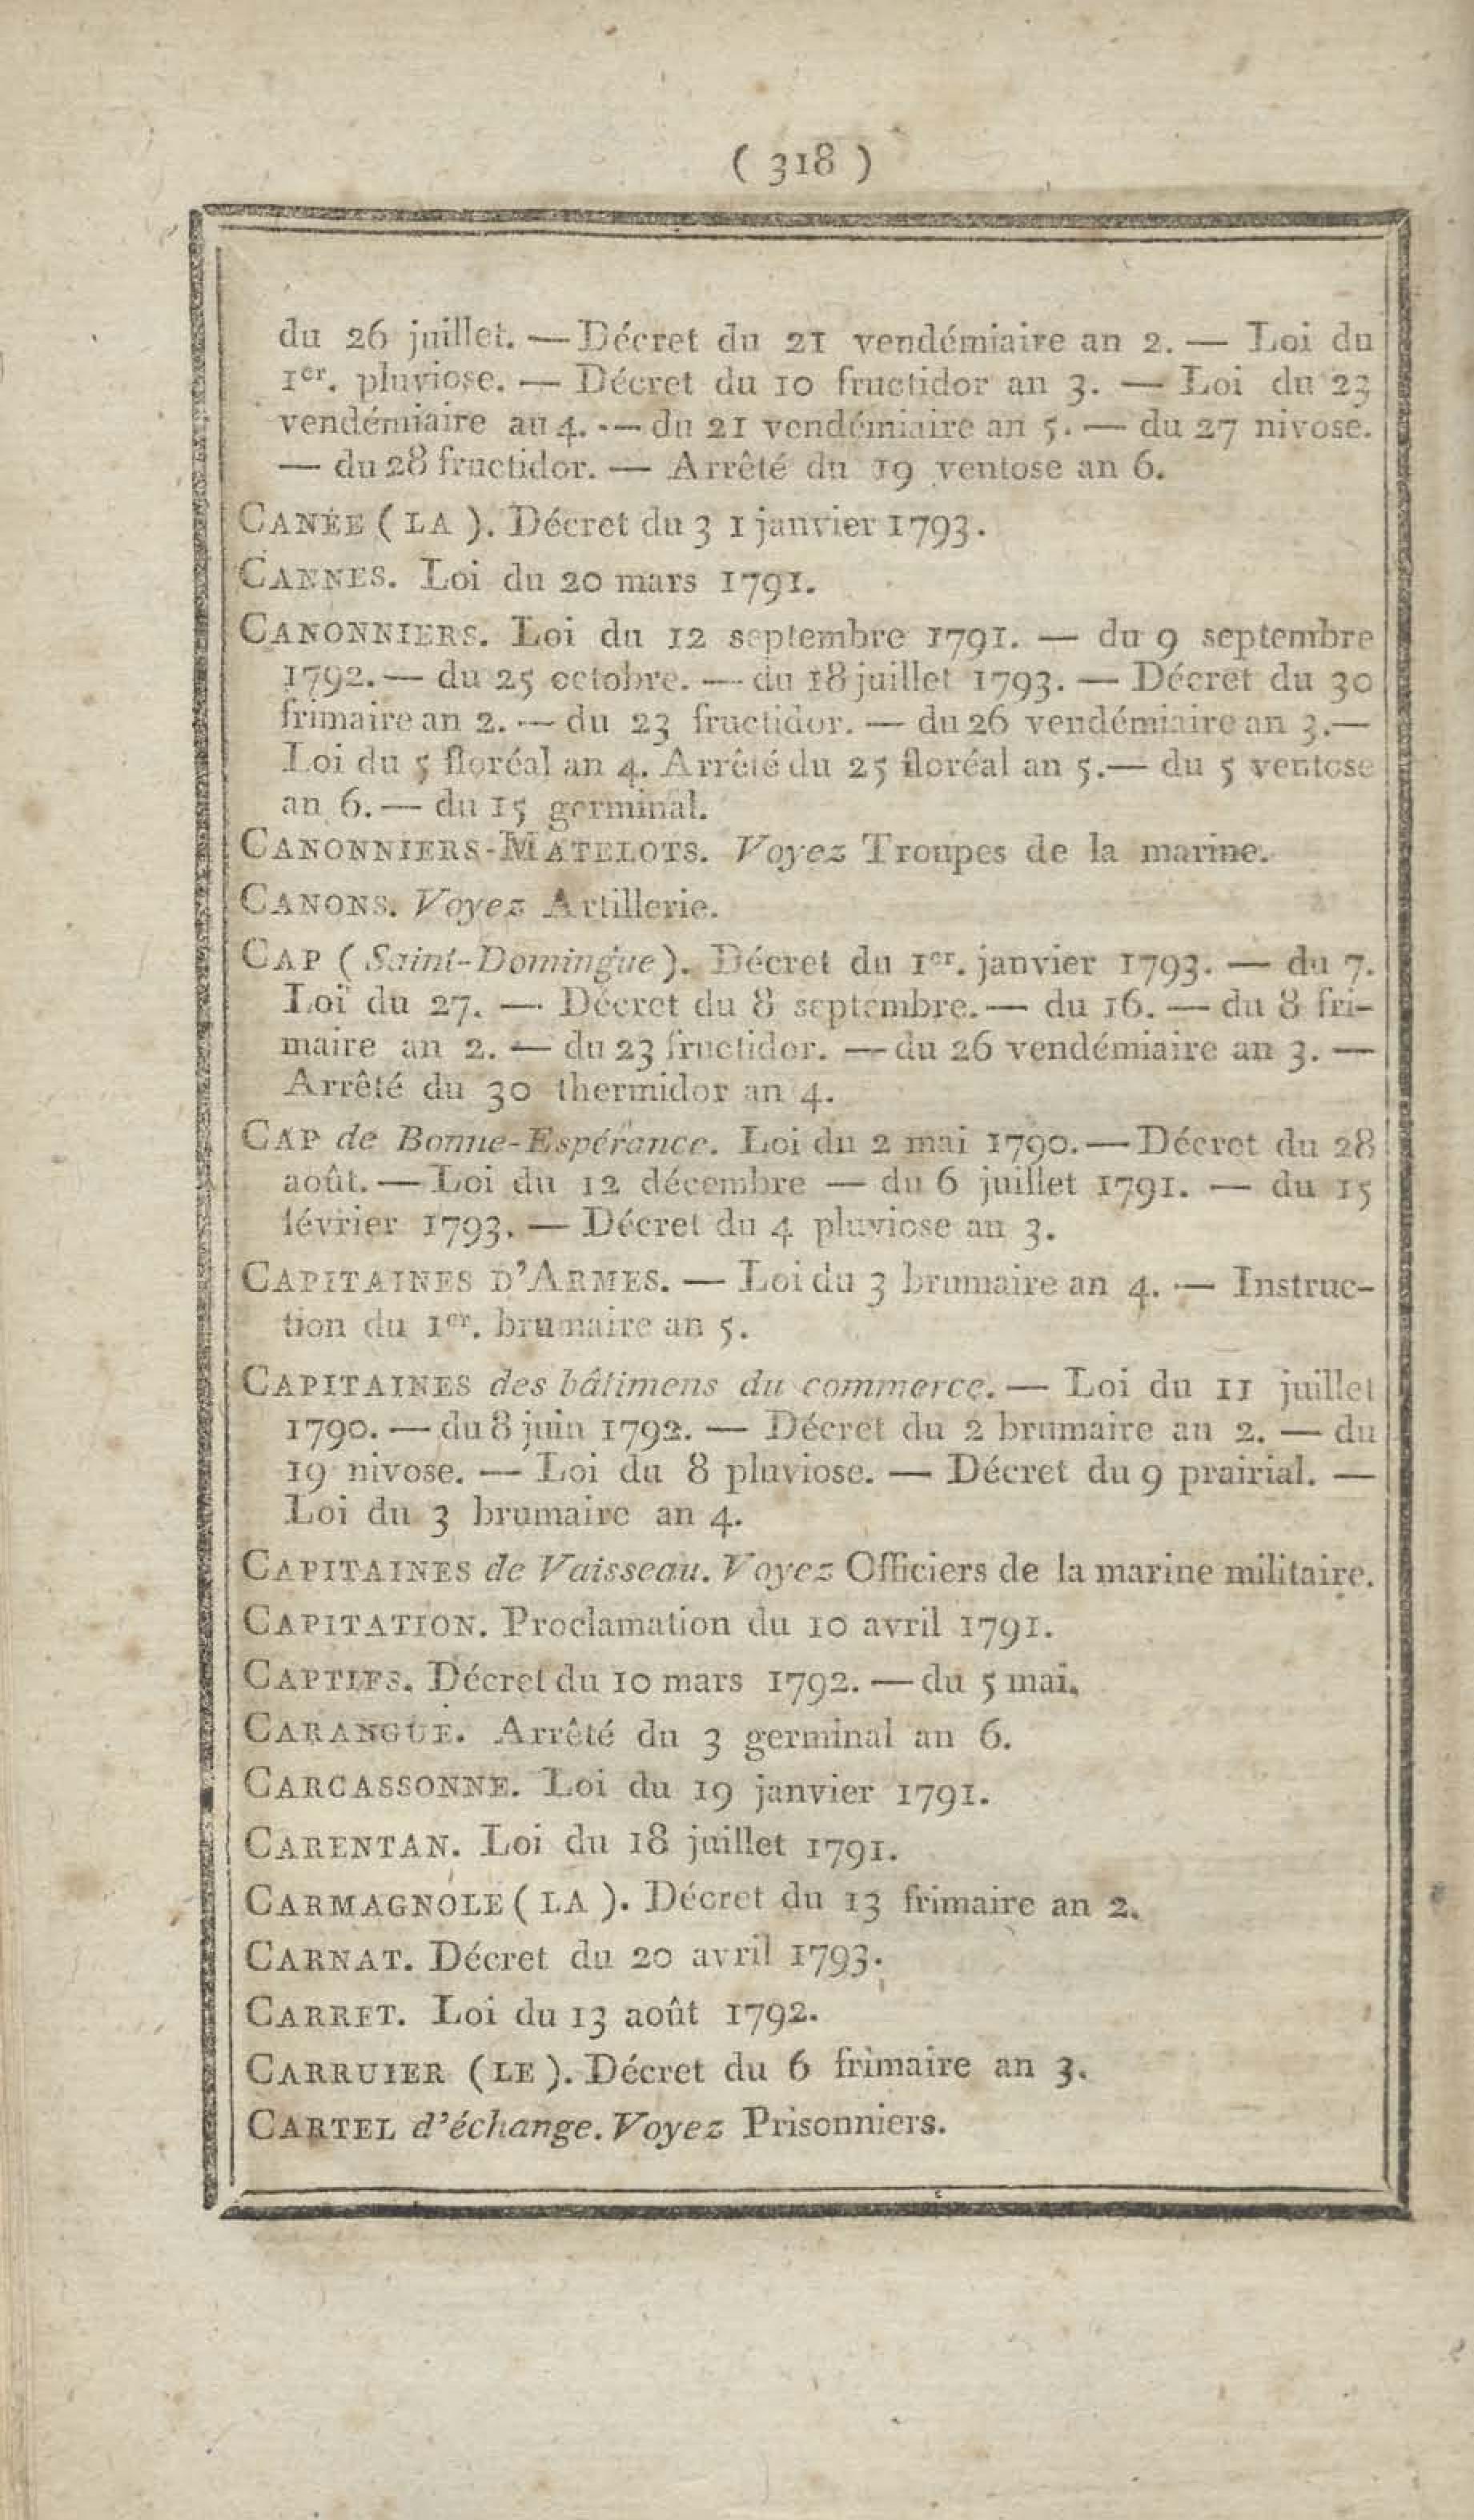 ( 318 )
du 26 juillet. — Décret du 21 vendémiaire an 2. — Loi du
1er. pluviose. — Décret du 10 fructidor an 3. — Loi du 23
vendémiaire an 4. — du 21 vendémiaire an 5. — du 27 nivose.
— du 28 fructidor. — Arrêté du 19 ventose an 6.
CANÉE ( LA ). Décret du 3 1 janvier 1793.
CANNES. Loi du 20 mars 1791.
CANONNIERS. Loi du 12 septembre 1791. — du 9 septembre
1792. — du 25 octobre. — du 18 juillet 1793. — Décret du 30
frimaire an 2. — du 23 fructidor. — du 26 vendémiaire an 3. —
Loi du 5 floréal an 4. Arrêté du 25 floréal an 5. — du 5 ventose
an 6. — du 15 germinal.
CANONNIERS-MATELOTS. Voyez Troupes de la marine.
CANONS. Voyez Artillerie.
CAP ( Saint-Domingue ). Décret du 1er. janvier 1793. — du 7.
Loi du 27. — Décret du 8 septembre. — du 16. — du 8 fri-
maire an 2. — du 23 fructidor. — du 26 vendémiaire an 3. —
Arrêté du 30 thermidor an 4.
CAP de Bonne-Espérance. Loi du 2 mai 1790. — Décret du 28
août. — Loi du 12 décembre — du 6 juillet 1791. — du 15
février 1793. — Décret du 4 pluviose an 3.
CAPITAINES D'ARMES. — Loi du 3 brumaire an 4. — Instruc-
tion du 1er. brumaire an 5.
CAPITAINES des bâtimens du commerce. — Loi du 11 juillet
1790. — du 8 juin 1792. — Décret du 2 brumaire an 2. — du
19 nivose. — Loi du 8 pluviose. — Décret du 9 prairial. —
Loi du 3 brumaire an 4.
CAPITAINES de Vaisseau. Voyez Officiers de la marine militaire.
CAPITATION. Proclamation du 10 avril 1791.
CAPTIFS. Décret du 10 mars 1792. — du 5 mai.
CARANGUE. Arrêté du 3 germinal an 6.
CARCASSONNE. Loi du 19 janvier 1791.
CARENTAN. Loi du 18 juillet 1791.
CARMAGNOLE ( LA ). Décret du 13 frimaire an 2.
CARNAT. Décret du 20 avril 1793.
CARRET. Loi du 13 août 1792.
CARRUIER ( LE ). Décret du 6 frimaire an 3.
CARTEL d'échange. Voyez Prisonniers.